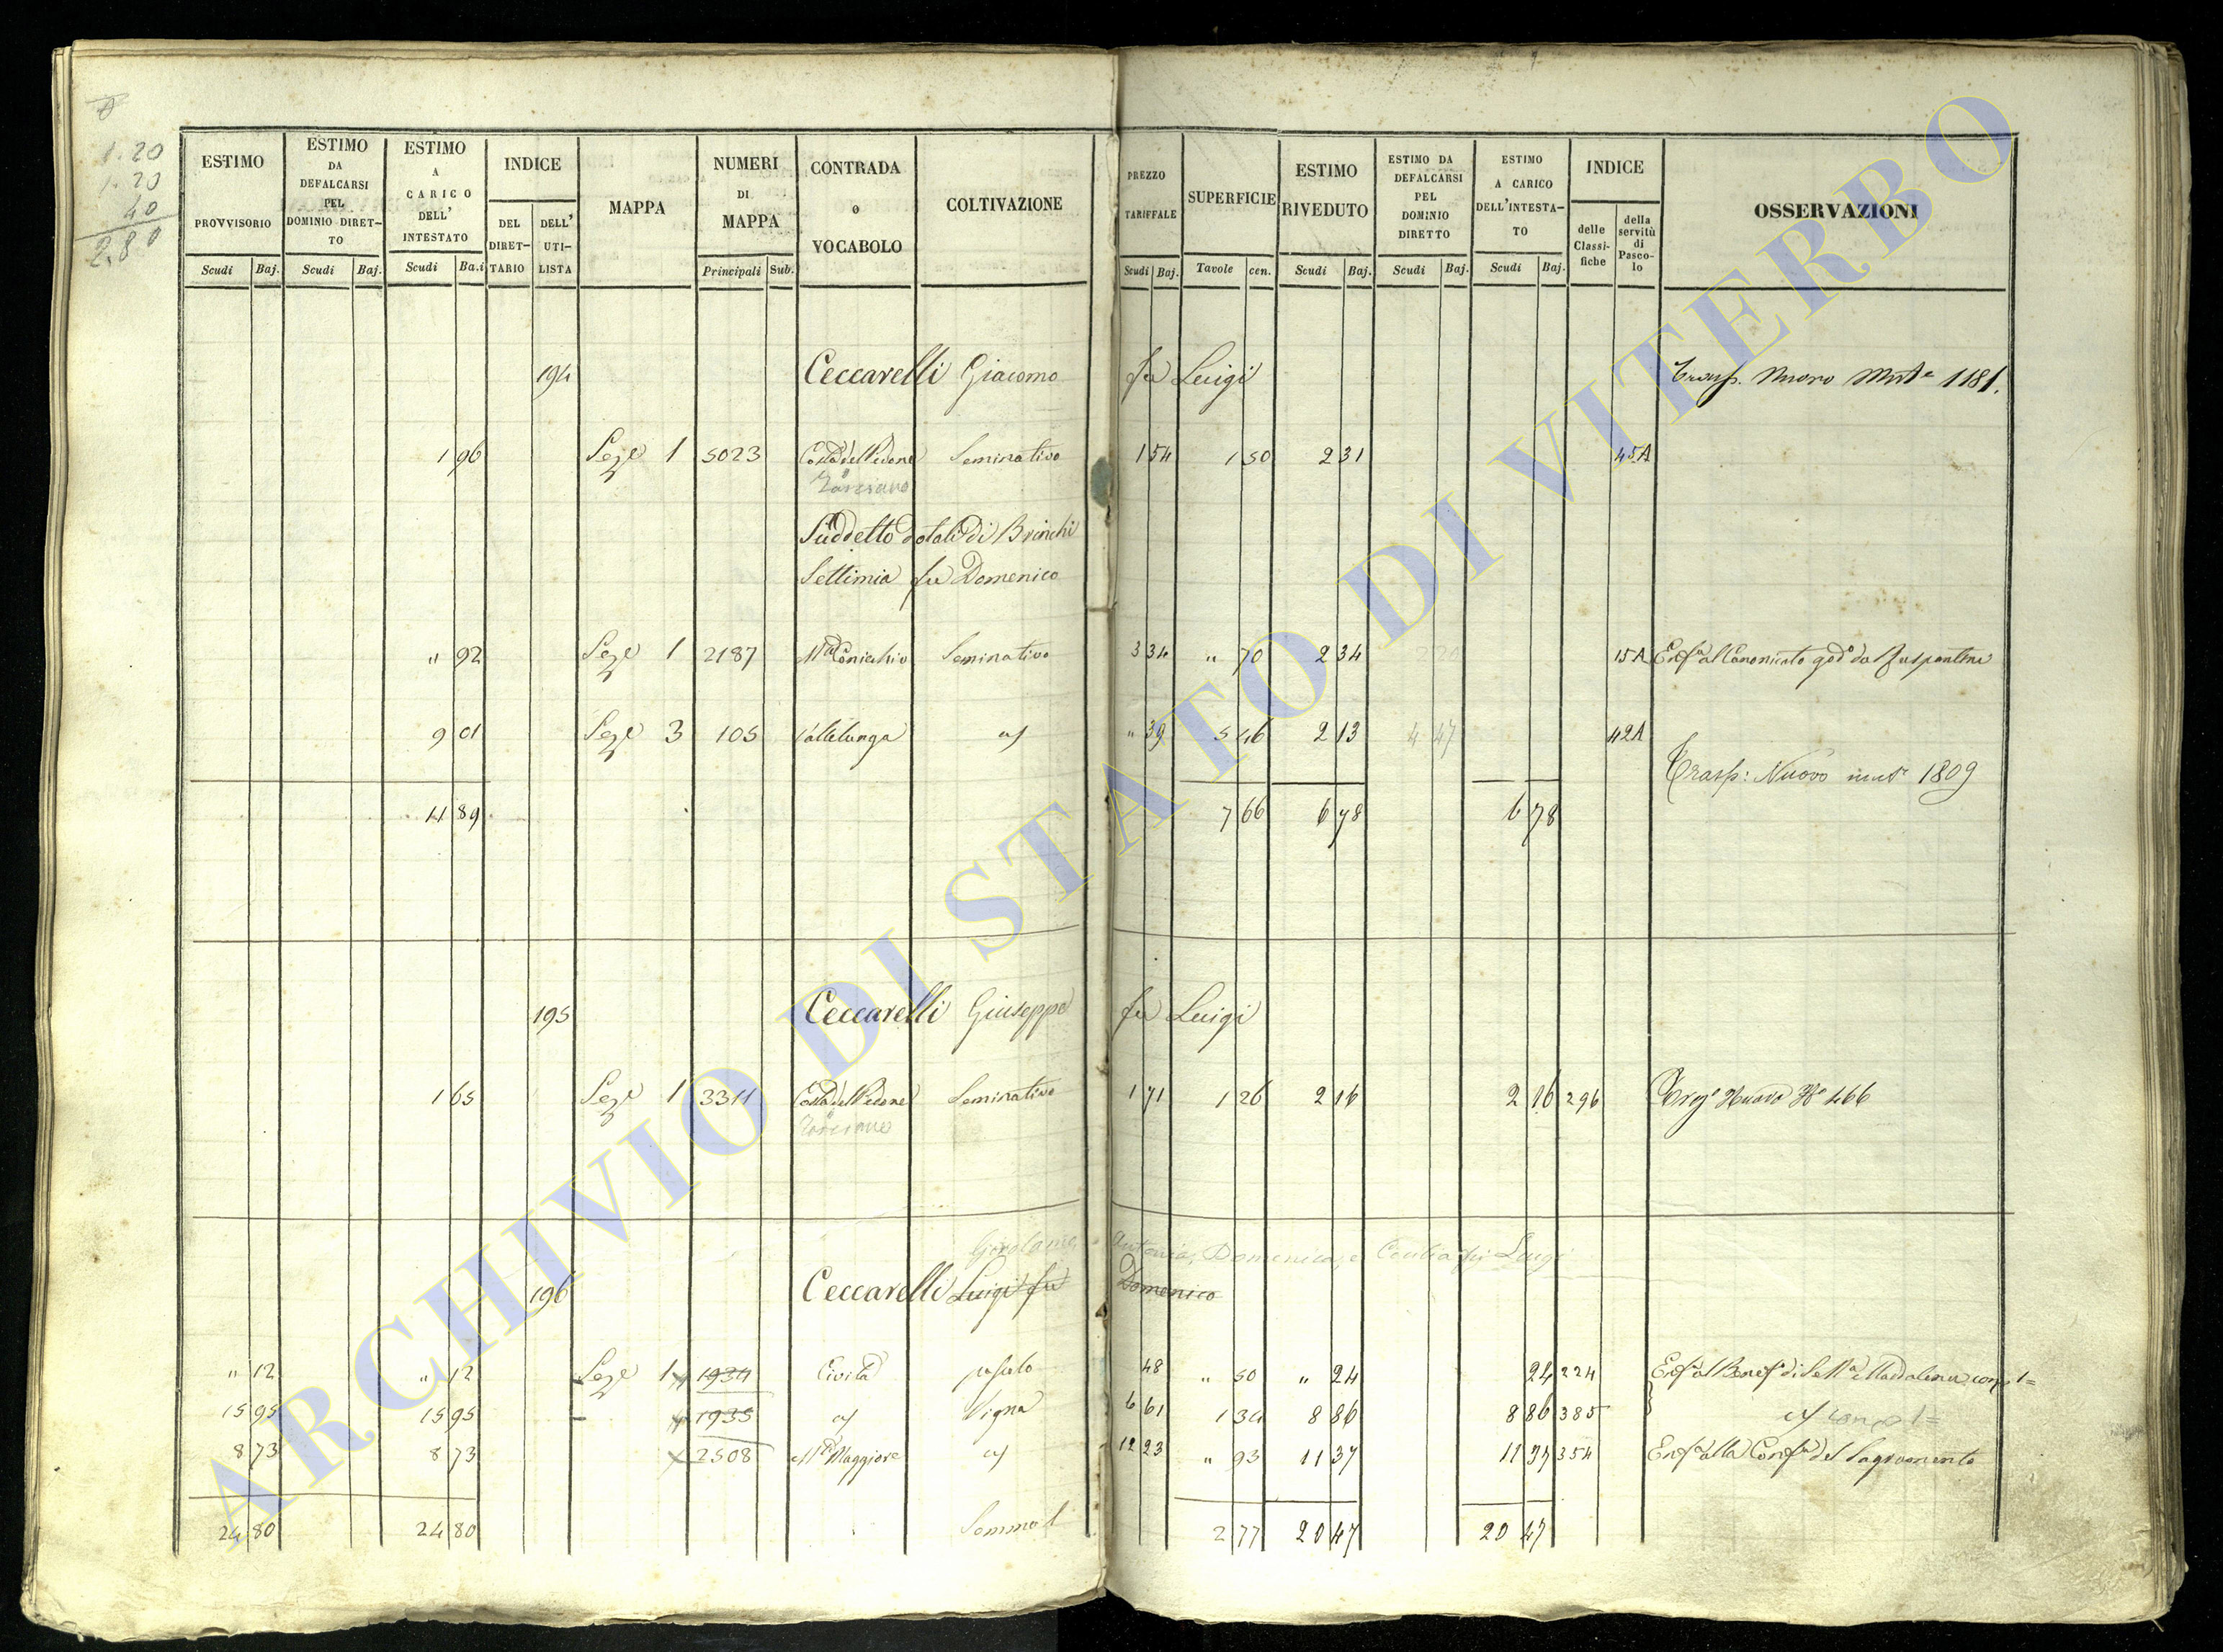 1.20
1.20
40
2.80
ESTIMO PROVVISORIO
ESTIMO DA DEFALCARSI PEL DOMINIO DIRET-TO
ESTIMO A CARICO DELL' INTESTATO
INDICE
DEL DIRET-TARIO
DELL' UTI-LISTA
MAPPA
NUMERI DI MAPPA
CONTRADA o VOCABOLO
COLTIVAZIONE
PREZZO TARIFFALE
SUPERFICIE
ESTIMO RIVEDUTO
ESTIMO DA DEFALCARSI PEL DOMINIO DIRETTO
ESTIMO A CARICO DELL'INTESTA-TO
INDICE
delle Classi-fiche
della servitù di Pasco-lo
OSSERVAZIONI
Scudi Baj. Scudi Baj. Scudi Ba.i Principali Sub. Scudi Baj. Tavole cen. Scudi Baj. Scudi Baj. Scudi Baj.
194 Ceccarelli Giacomo fu Luigi Trasp. Nuovo 1181.
1 96 Seze 1 5023 Costa del Pecone Seminativo 1 54 1 50 2 31 45A
Suddetto dotali di Brinchi
Settimia fu Domenico
" 92 Seze 1 2187 Seminativo 3 34 " 70 2 34 15A Enf.a al Canonicato god.o da
9 01 Seze 3 105 Vallelunga " 39 5 46 2 13 4 47 42A
Trasp: Nuovo 1809
4 89 7 66 6 78 6 78
195 Ceccarelli Giuseppe fu Luigi
1 65 Seze 1 3311 Costa del Pecone Seminativo 1 71 1 26 2 16 2 16 296 Nuovo 466
Antonia, Domenica, e Luigi
196 Ceccarelli Luigi fu Domenico
" 12 " 12 Seze 1 1934 Civita 48 " 50 " 24 24 224
15 95 15 95 1935 Vigna 6 61 1 34 8 86 8 86 385
8 73 8 73 2508 M.te Maggiore 12 23 " 93 11 37 11 37 354 Enf.a alla Conf.a del Sagramento
24 80 24 80 Somma 2 77 20 47 20 47
ARCHIVIO DI STATO DI VITERBO